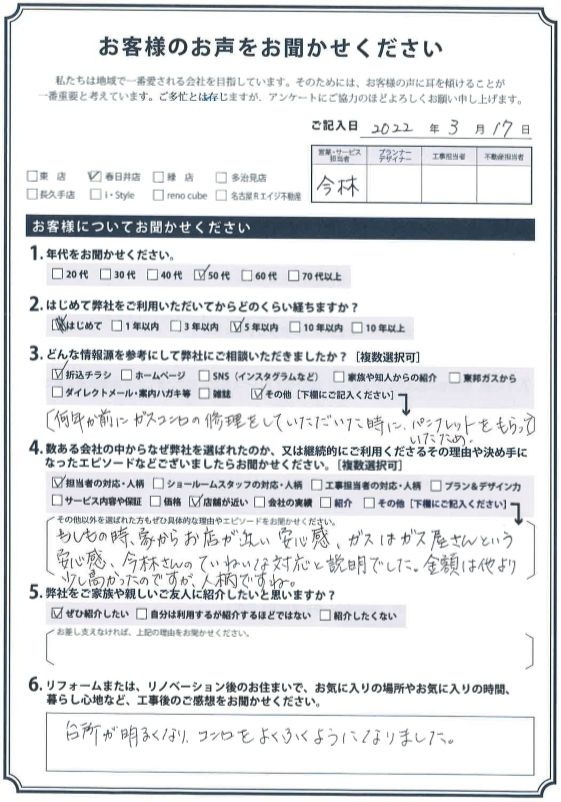 お客様のお声をお聞かせください
私たちは地域で一番愛される会社を目指しています。そのためには、お客様の声に耳を傾けることが
一番重要と考えています。ご多忙とは存じますが、アンケートにご協力のほどよろしくお願い申し上げます。
ご記入日 2022 年 3 月 17 日
営業・サービス担当者 プランナーデザイナー 工事担当者 不動産担当者
今林
□東 店 ☑春日井店 □緑 店 □多治見店
□長久手店 □i・Style □reno cube □名古屋Rエイジ不動産
お客様についてお聞かせください
1. 年代をお聞かせください。
□20代 □30代 □40代 ☑50代 □60代 □70代以上
2. はじめて弊社をご利用いただいてからどのくらい経ちますか?
はじめて □1年以内 □3年以内 ☑5年以内 □10年以内 □10年以上
3. どんな情報源を参考にして弊社にご相談いただきましたか?[複数選択可]
☑折込チラシ □ホームページ □SNS(インスタグラムなど) □家族や知人からの紹介 □東邦ガスから
□ダイレクトメール・案内ハガキ等 □雑誌 ☑その他[下欄にご記入ください]
何年か前にガスコンロの修理をしていただいた時に、パンフレットをもらって
いたため。
4. 数ある会社の中からなぜ弊社を選ばれたのか、又は継続的にご利用くださるその理由や決め手に
なったエピソードなどございましたらお聞かせください。[複数選択可]
☑担当者の対応・人柄 □ショールームスタッフの対応・人柄 □工事担当者の対応・人柄 □プラン&デザイン力
□サービス内容や保証 □価格 ☑店舗が近い □会社の実績 □紹介 □その他[下欄にご記入ください]
その他以外を選ばれた方もぜひ具体的な理由やエピソードをお聞かせください。
もしもの時、家からお店が近い安心感、ガスはガス屋さんという
安心感、今林さんのていねいな対応と説明でした。金額は他より
少し高かったのですが、人柄ですね。
5. 弊社をご家族や親しいご友人に紹介したいと思いますか?
☑ぜひ紹介したい □自分は利用するが紹介するほどではない □紹介したくない
お差し支えなければ、上記の理由をお聞かせください。
6. リフォームまたは、リノベーション後のお住まいで、お気に入りの場所やお気に入りの時間、
暮らし心地など、工事後のご感想をお聞かせください。
台所が明るくなり、コンロをよくふくようになりました。